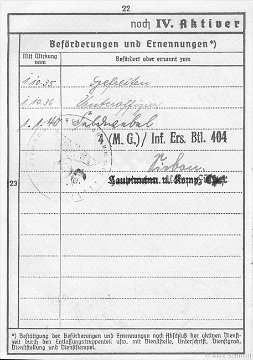 22
noch IV. Aktiver
Beförderungen und Ernennungen*)
Mit Wirkung vom
Befördert oder ernannt zum
1.10.35 Gefreiten
1.10.36 Unteroffizier
1.1.40 Feldwebel
4 (M.G.)/ Inf. Ers. Btl. 404
Hauptmann u. Komp.
23
*) Bestätigung der Beförderungen und Ernennungen nach Abschluß der aktiven Dienst-
zeit durch den Entlassungstruppenteil usw. mit Dienststelle, Unterschrift, Dienstgrad,
Dienststellung und Dienststempel.